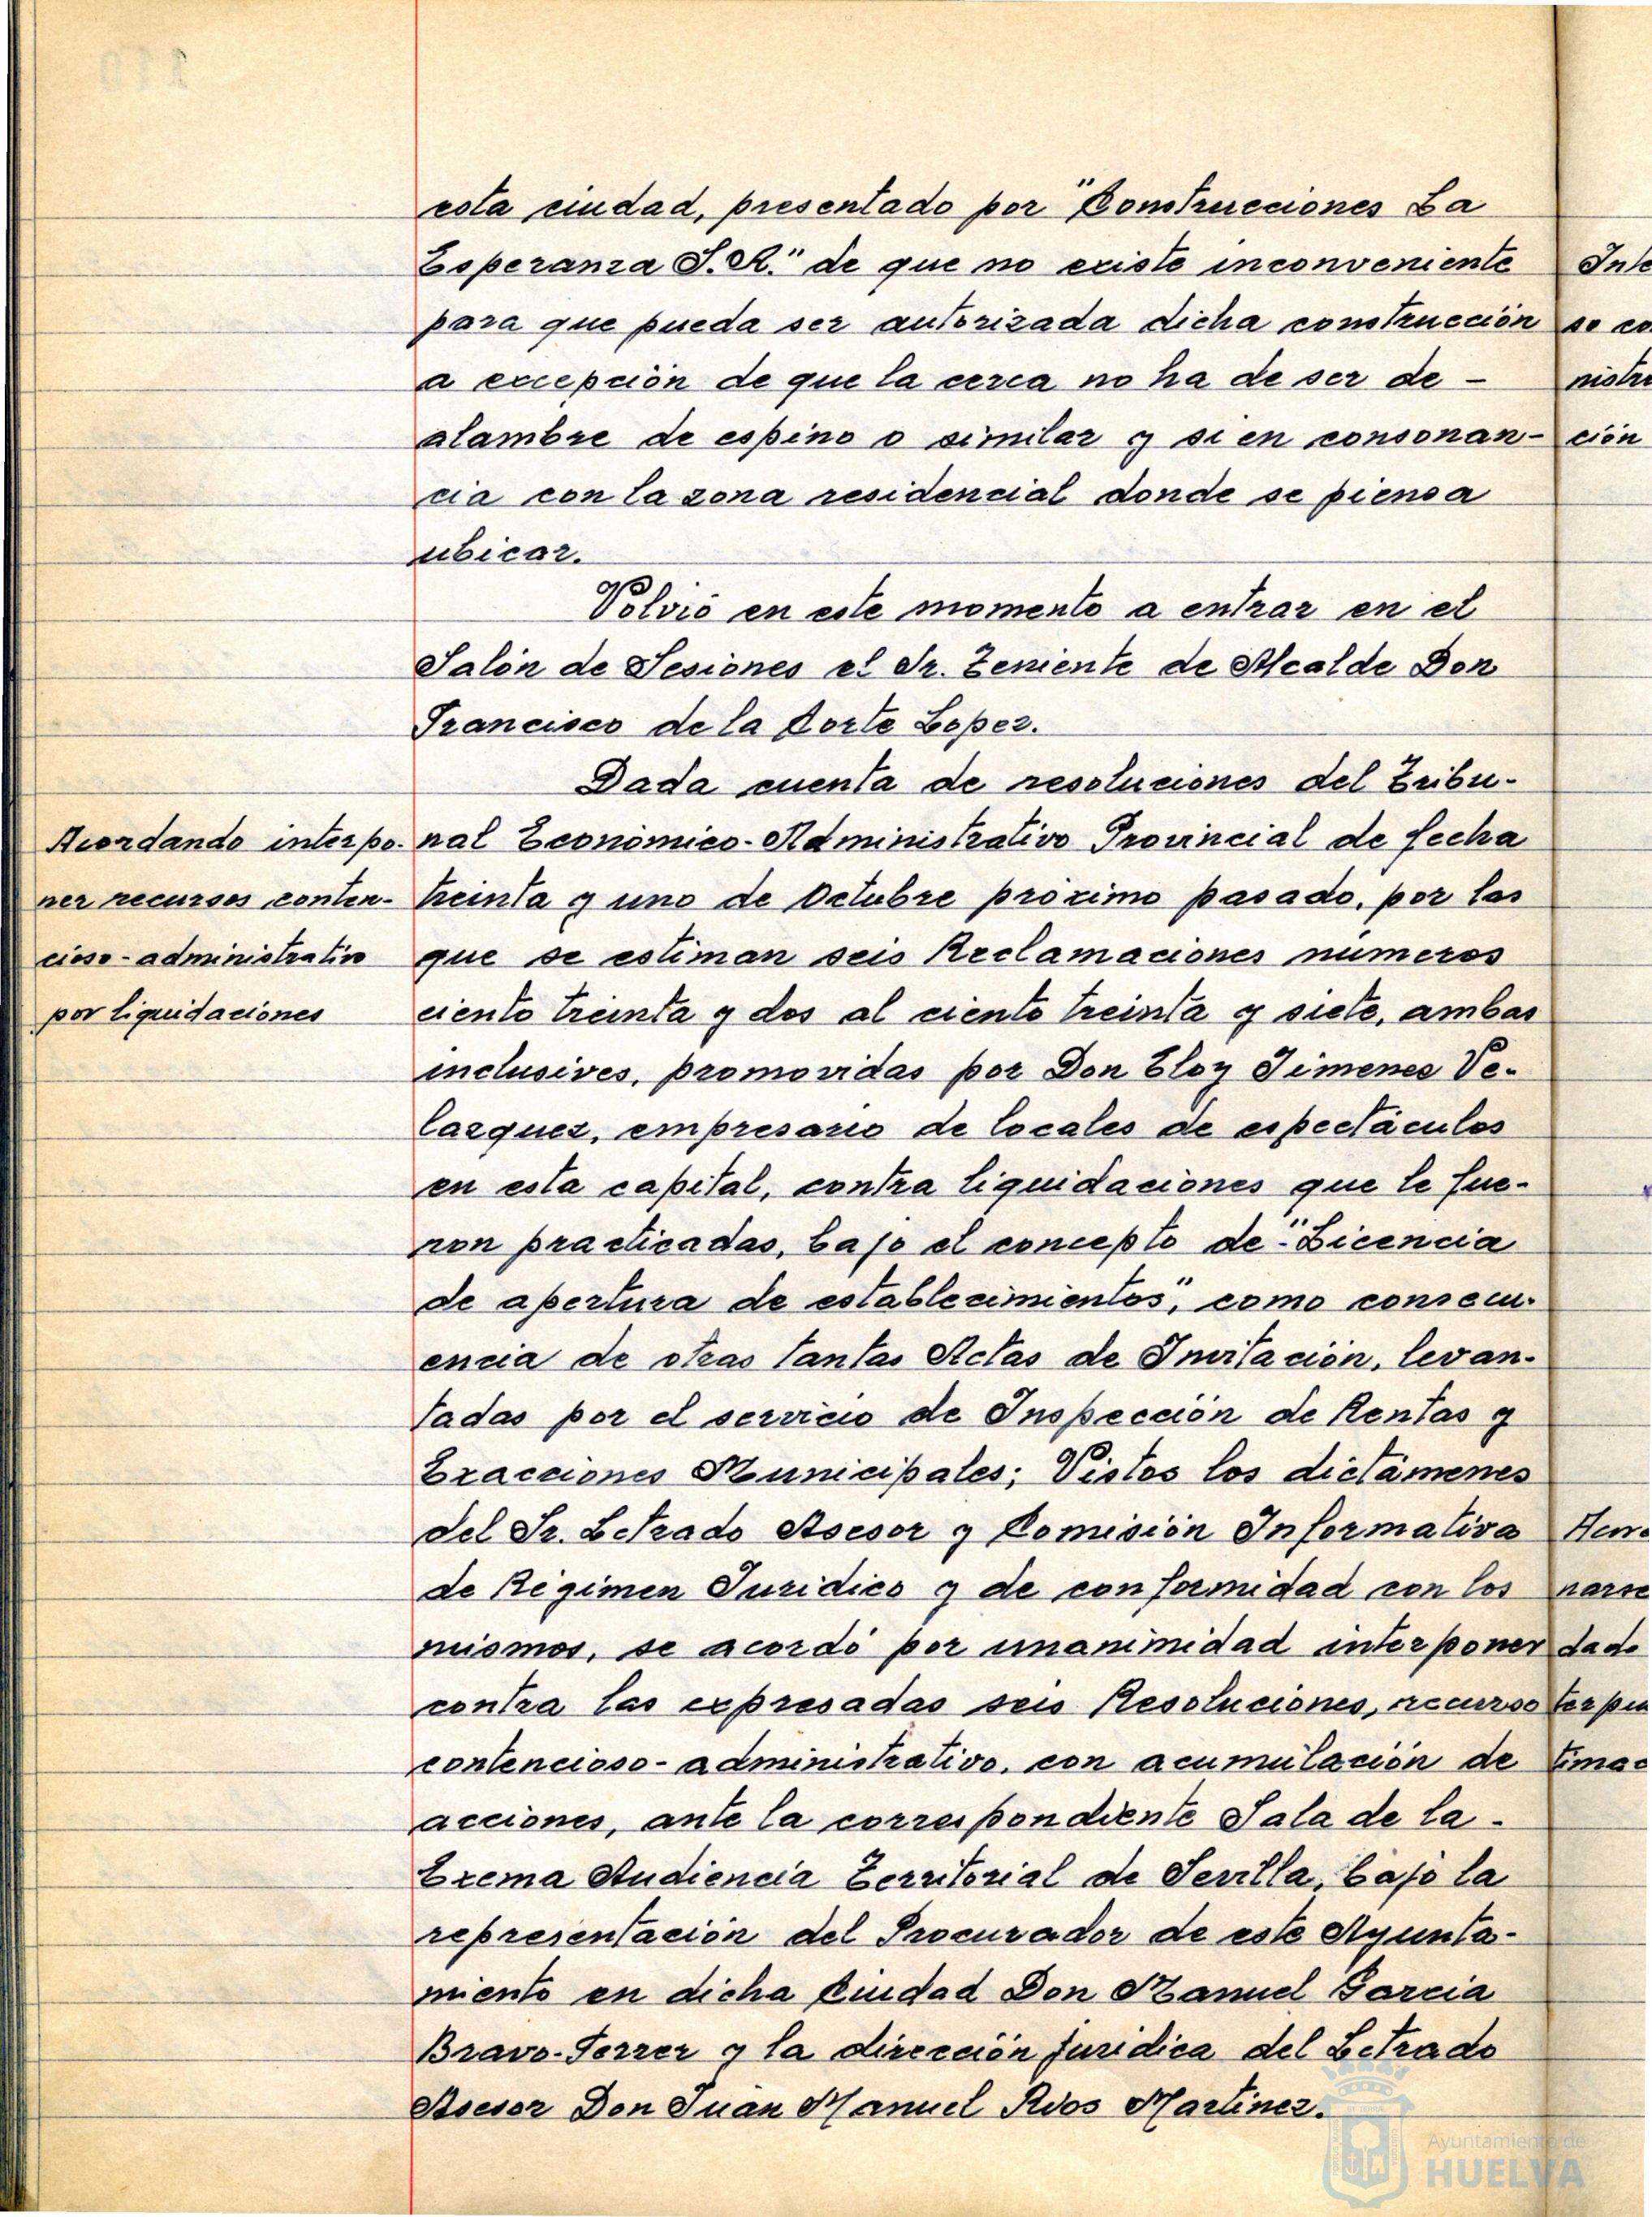 esta ciudad, presentado por "Construcciones La
Esperanza S.A." de que no existe inconveniente
para que pueda ser autorizada dicha construcción
a excepción de que la cerca no ha de ser de -
alambre de espino o similar y si en consonan-
cia con la zona residencial donde se piensa
ubicar.
Volvió en este momento a entrar en el
Salón de Sesiones el Sr. Teniente de Alcalde Don
Francisco de la Corte Lopez.
Dada cuenta de resoluciones del Tribu-
nal Económico-Administrativo Provincial de fecha
treinta y uno de Octubre próximo pasado, por las
que se estiman seis Reclamaciones números
ciento treinta y dos al ciento treinta y siete, ambas
inclusives, promovidas por Don Eloy Jimenez Ve-
lazquez, empresario de locales de espectáculos
en esta capital, contra liquidaciones que le fue-
ron practicadas, bajo el concepto de "Licencia
de apertura de establecimientos", como consecu-
encia de otras tantas Actas de Invitación, levan-
tadas por el servicio de Inspección de Rentas y
Exacciones Municipales; Vistos los dictámenes
del Sr. Letrado Asesor y Comisión Informativa
de Régimen Juridico y de conformidad con los
mismos, se acordó por unanimidad interponer
contra las expresadas seis Resoluciones, recurso
contencioso-administrativo, con acumulación de
acciones, ante la correspondiente Sala de la -
Exema Audiencia Territorial de Sevilla, bajo la
representación del Procurador de este Ayunta-
miento en dicha Ciudad Don Manuel Garcia
Bravo-Ferrer y la dirección juridica del Letrado
Asesor Don Juan Manuel Rios Martinez.
Acordando interpo-
ner recursos conten-
cioso-administrativo
por liquidaciones
Inte
so co
nistr
ción
narse
dado
Ayuntamiento de
HUELVA